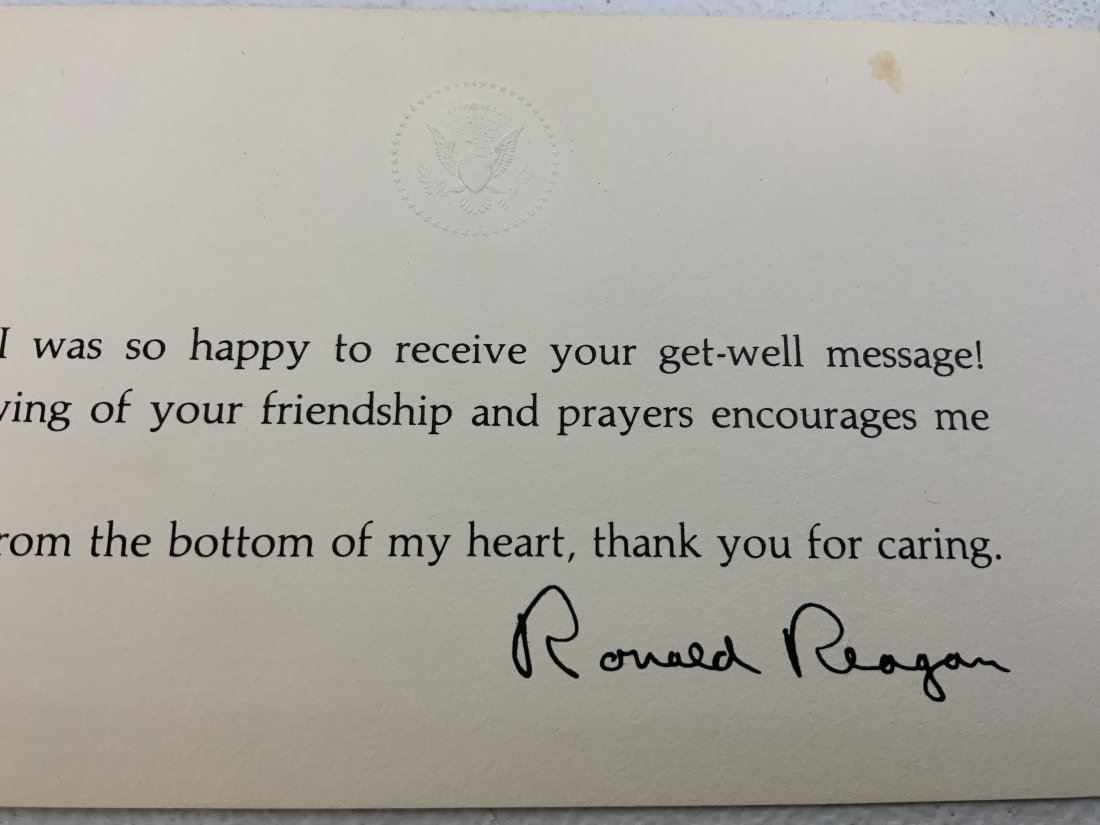 I was so happy to receive your get-well message!
ying of your friendship and prayers encourages me
rom the bottom of my heart, thank you for caring.
Ronald Reagan